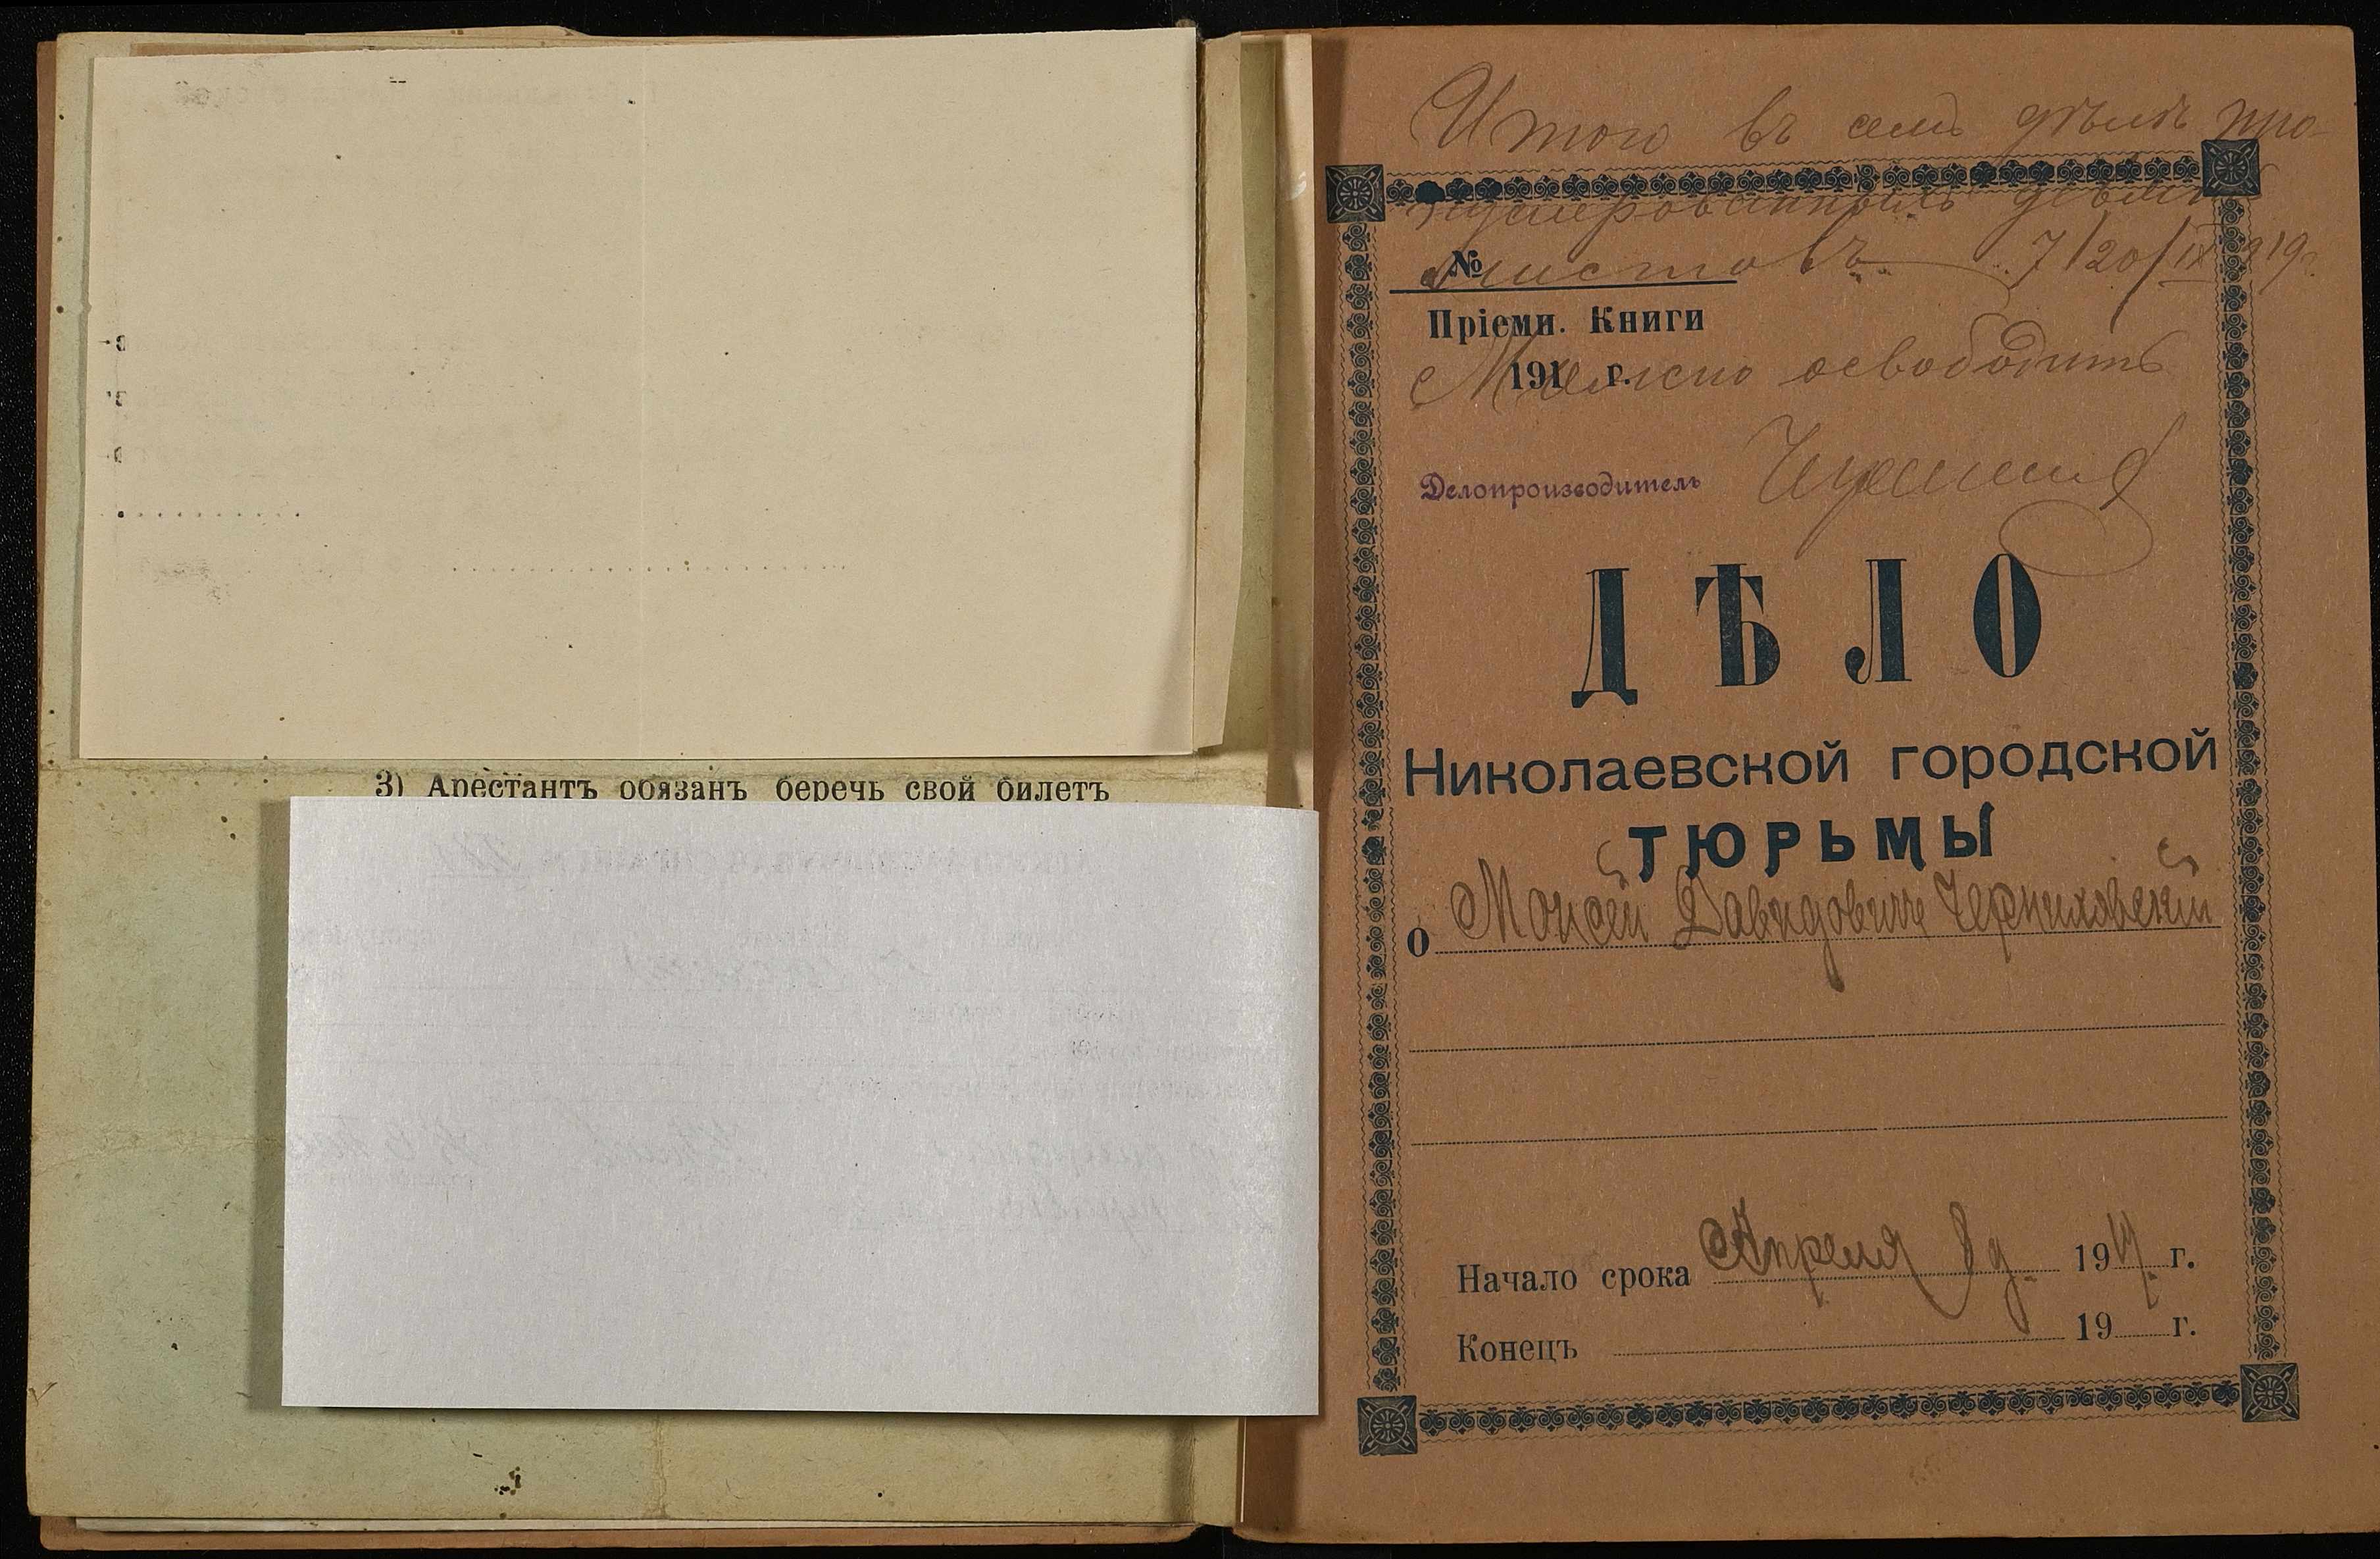 3) Арестантъ обязанъ беречь свой билетъ
Итого въ семъ дѣлѣ про-
нумерованныхъ
№ листовъ 7/20/IX 919г.
Пріемн. Книги
191 г.
Можно освободить
Делопроизводитель
ДѢЛО
Николаевской городской
ТЮРЬМЫ
О Моисей Давидовиче Черниховскій
Начало срока Апреля 8 д. 1919 г.
Конецъ 19 г.